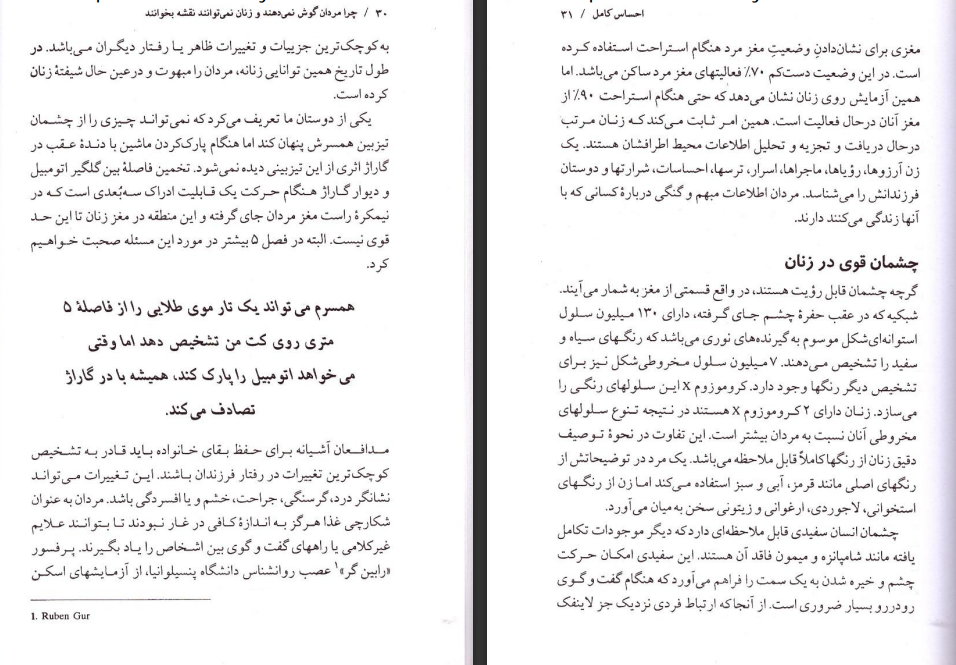 ۳۰ / چرا مردان گوش نمی‌دهند و زنان نمی‌توانند نقشه بخوانند
به کوچک‌ترین جزییات و تغییرات ظاهر یا رفتار دیگران می‌باشد. در
طول تاریخ همین توانایی زنانه، مردان را مبهوت و درعین حال شیفتهٔ زنان
کرده است.
یکی از دوستان ما تعریف می‌کرد که نمی‌تواند چیزی را از چشمان
تیزبین همسرش پنهان کند اما هنگام پارک‌کردن ماشین با دندهٔ عقب در
گاراژ اثری از این تیزبینی دیده نمی‌شود. تخمین فاصلهٔ بین گلگیر اتومبیل
و دیوار گاراژ هنگام حرکت یک قابلیت ادراک سه‌بُعدی است که در
نیمکرهٔ راست مغز مردان جای گرفته و این منطقه در مغز زنان تا این حد
قوی نیست. البته در فصل ۵ بیشتر در مورد این مسئله صحبت خواهیم
کرد.
همسرم می‌تواند یک تار موی طلایی را از فاصلهٔ ۵
متری روی کت من تشخیص دهد اما وقتی
می‌خواهد اتومبیل را پارک کند، همیشه با در گاراژ
تصادف می‌کند.
مدافعان آشیانه برای حفظ بقای خانواده باید قادر به تشخیص
کوچک‌ترین تغییرات در رفتار فرزندان باشند. این تغییرات می‌تواند
نشانگر درد، گرسنگی، جراحت، خشم و یا افسردگی باشد. مردان به عنوان
شکارچی غذا هرگز به اندازهٔ کافی در غار نبودند تا بتوانند علایم
غیرکلامی یا راههای گفت و گوی بین اشخاص را یاد بگیرند. پرفسور
«رابین گر»۱ عصب روانشناس دانشگاه پنسیلوانیا، از آزمایشهای اسکن
1. Ruben Gur
احساس کامل / ۳۱
مغزی برای نشان‌دادنِ وضعیتِ مغز مرد هنگام استراحت استفاده کرده
است. در این وضعیت دست‌کم ۷۰٪ فعالیتهای مغز مرد ساکن می‌باشد. اما
همین آزمایش روی زنان نشان می‌دهد که حتی هنگام استراحت ۹۰٪ از
مغز آنان درحال فعالیت است. همین امر ثابت می‌کند که زنان مرتب
درحال دریافت و تجزیه و تحلیل اطلاعات محیط اطرافشان هستند. یک
زن آرزوها، رؤیاها، ماجراها، اسرار، ترسها، احساسات، شرارتها و دوستان
فرزندانش را می‌شناسد. مردان اطلاعات مبهم و گنگی دربارهٔ کسانی که با
آنها زندگی می‌کنند دارند.
چشمان قوی در زنان
گرچه چشمان قابل رؤیت هستند، در واقع قسمتی از مغز به شمار می‌آیند.
شبکیه که در عقب حفرهٔ چشم جای گرفته، دارای ۱۳۰ میلیون سلول
استوانه‌ای‌شکل موسوم به گیرنده‌های نوری می‌باشد که رنگهای سیاه و
سفید را تشخیص می‌دهند. ۷ میلیون سلول مخروطی‌شکل نیز برای
تشخیص دیگر رنگها وجود دارد. کروموزوم x این سلولهای رنگی را
می‌سازد. زنان دارای ۲ کروموزوم x هستند در نتیجه تنوع سلولهای
مخروطی آنان نسبت به مردان بیشتر است. این تفاوت در نحوهٔ توصیف
دقیق زنان از رنگها کاملاً قابل ملاحظه می‌باشد. یک مرد در توضیحاتش از
رنگهای اصلی مانند قرمز، آبی و سبز استفاده می‌کند اما زن از رنگهای
استخوانی، لاجوردی، ارغوانی و زیتونی سخن به میان می‌آورد.
چشمان انسان سفیدی قابل ملاحظه‌ای دارد که دیگر موجودات تکامل
یافته مانند شامپانزه و میمون فاقد آن هستند. این سفیدی امکان حرکت
چشم و خیره شدن به یک سمت را فراهم می‌آورد که هنگام گفت و گوی
رودررو بسیار ضروری است. از آنجا که ارتباط فردی نزدیک جز لاینفک